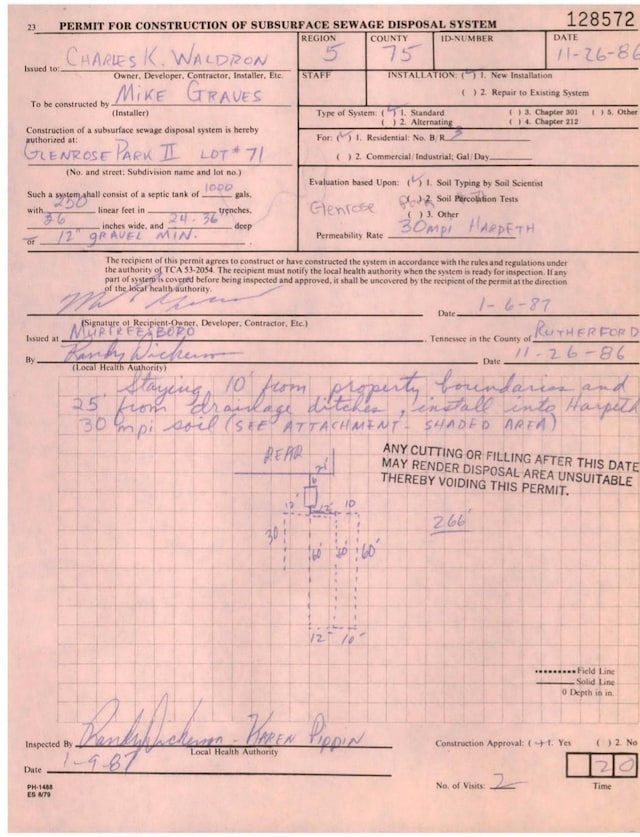 23 PERMIT FOR CONSTRUCTION OF SUBSURFACE SEWAGE DISPOSAL SYSTEM 128572
Issued to: CHARLES K. WALDRON
Owner, Developer, Contractor, Installer, Etc.
To be constructed by MIKE GRAVES
(Installer)
Construction of a subsurface sewage disposal system is hereby
authorized at:
GLENROSE PARK II LOT #71
(No. and street; Subdivision name and lot no.)
Such a system shall consist of a septic tank of 1000 gals,
with 250 linear feet in trenches,
36 inches wide, and 24-36" deep
or 12" GRAVEL MIN.
REGION 5
COUNTY 75
ID-NUMBER
DATE 11-26-86
STAFF
INSTALLATION: (✓) 1. New Installation
( ) 2. Repair to Existing System
Type of System: (✓) 1. Standard ( ) 3. Chapter 301 ( ) 5. Other
( ) 2. Alternating ( ) 4. Chapter 212
For: (✓) 1. Residential: No. B/R 3
( ) 2. Commercial/Industrial; Gal/Day
Evaluation based Upon: (✓) 1. Soil Typing by Soil Scientist
Glenrose Park ( ) 2. Soil Percolation Tests
( ) 3. Other
Permeability Rate 30 MPI HARPETH
The recipient of this permit agrees to construct or have constructed the system in accordance with the rules and regulations under
the authority of TCA 53-2054. The recipient must notify the local health authority when the system is ready for inspection. If any
part of system is covered before being inspected and approved, it shall be uncovered by the recipient of the permit at the direction
of the local health authority.
Date 1-6-87
(Signature of Recipient-Owner, Developer, Contractor, Etc.)
Issued at MURFREESBORO, Tennessee in the County of RUTHERFORD
By Randy Dickerson Date 11-26-86
(Local Health Authority)
Staying 10' from property boundaries and
25' from drainage ditches, install into Harpeth
30 mpi soil (SEE ATTACHMENT - SHADED AREA)
ANY CUTTING OR FILLING AFTER THIS DATE
MAY RENDER DISPOSAL AREA UNSUITABLE
THEREBY VOIDING THIS PERMIT.
REAR
12' 10
266'
30 60' 60'
12' 10'
Field Line
Solid Line
0 Depth in in.
Inspected By Randy Dickerson - KAREN PIPPIN
Local Health Authority
Date 1-9-87
Construction Approval: (✓) 1. Yes ( ) 2. No
20
No. of Visits: 2 Time
PH-1488
ES 8/79